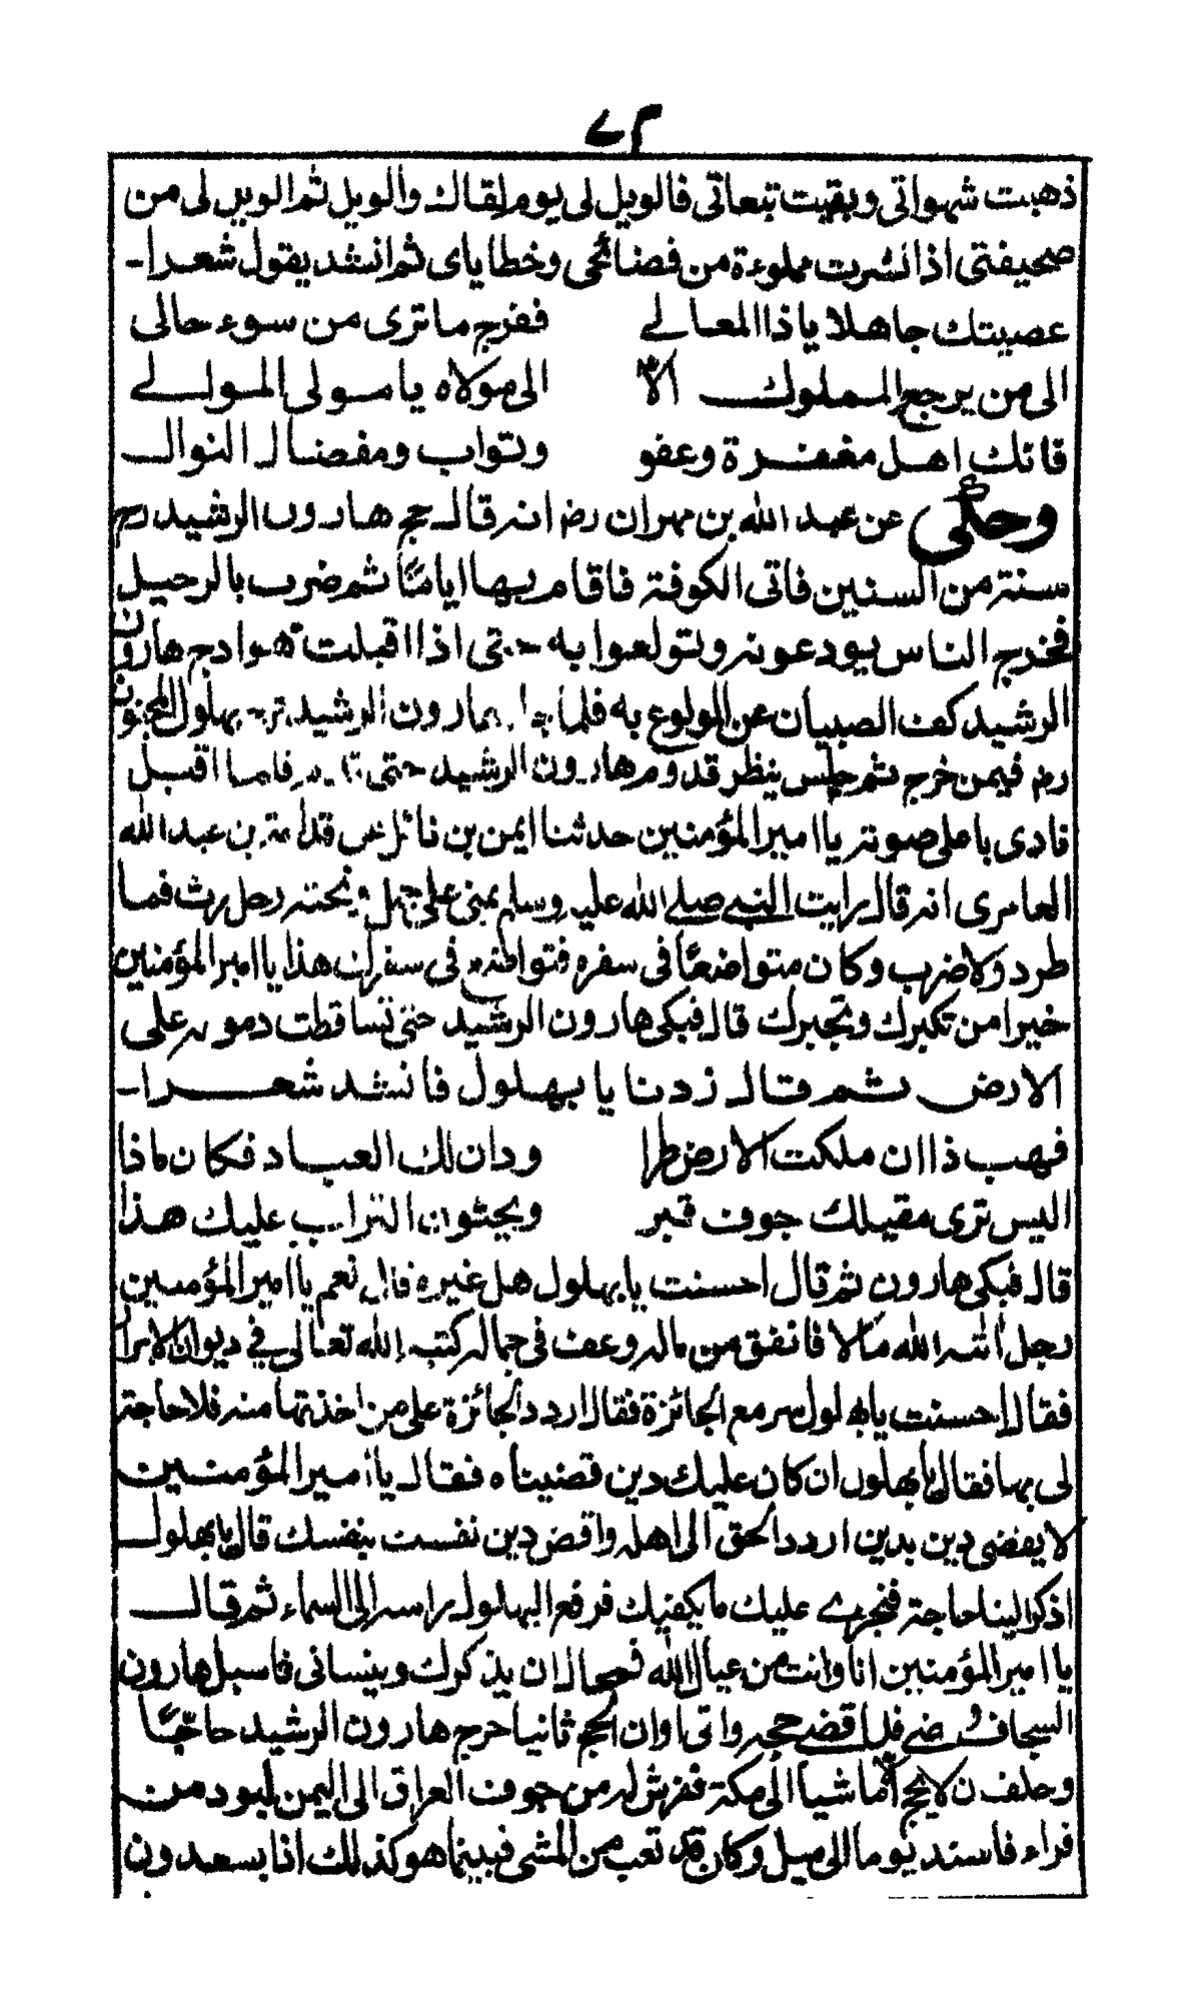 ٧٣
ذهبت شهواتي وبقيت تبعاتي فالويل لى يوم لقاك والويل ثم الويل لى من
صحيفتى اذا نشرت مملوءة من فضائحى وخطاياى ثم انشد يقول شعرا-
عصيتك جاهلا ياذا المعالے ففرج ما ترى من سوء حالى
الى من يرجع المملوك الا الى مولاه يا سولى المولے
فانك اهل مغفرة وعفو وتواب ومفضال النوال
وحكى عن عبد الله بن مهران رض انه قال حج هارون الرشيد رح
سنة من السنين فاتى الكوفة فاقام بها اياما ثم ضرب بالرحيل
فخرج الناس يودعونه وتولعوا به حتى اذا اقبلت هوادج هارون
الرشيد كف الصبيان عن الولوع به فلما هارون الرشيد بهلول المجنون
رض فيمن خرج ثم جلس ينظر قدوم هارون الرشيد حتى فلما اقبل
نادى باعلى صوته يا امير المؤمنين حدثنا ايمن بن نائل عن قدامة بن عبد الله
العامرى انه قال رايت النبى صلے الله عليه وسلم بمنى على جمل وتحته رحل رث فما
طرد ولا ضرب وكان متواضعا فى سفره فتواضعه فى سفرك هذا يا امير المؤمنين
خيرا من تكبرك وتجبرك قال فبكى هارون الرشيد حتى تساقطت دموعه على
الارض ثم قال زدنا يا بهلول فانشد شعرا-
فهب ذا ان ملكت الارض طرا ودان لك العباد فكان ماذا
اليس ترى مقيلك جوف قبر ويحثون التراب عليك هذا
قال فبكى هارون ثم قال احسنت يا بهلول هل غيره قال نعم يا امير المؤمنين
رجل اتاه الله مالا فانفق من ماله وعف فى جماله كتبه الله تعالى في ديوان الابرار
فقال احسنت يا بهلول مع الجائزة فقال اردد الجائزة على من اخذتها منه فلا حاجة
لى بها فقال يا بهلول ان كان عليك دين قضيناه فقال يا امير المؤمنين
لا يقضى دين بدين اردد الحق الى اهله واقض دين نفست بنفسك قال يا بهلول
اذكر الينا حاجة فنجرے عليك ما يكفيك فرفع البهلول راسه الى السماء ثم قال
يا امير المؤمنين انا وانت من عيال الله فمحال ان يذكرك وينسانى فاسبل هارون
السجاف و فلما قضے حجه واتى اوان الحج ثانيا خرج هارون الرشيد حاجا
وحلف ن لا يحج الا ماشيا الى مكة ففرش له من جوف العراق الى اليمن لبود من
فراء فاستند يوما الى ميل وكان قد تعب من المشى فبينما هو كذلك اذا بسعدون